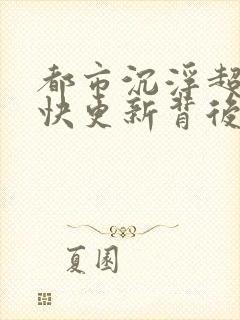 都市沉浮超
快更新背後
夏園